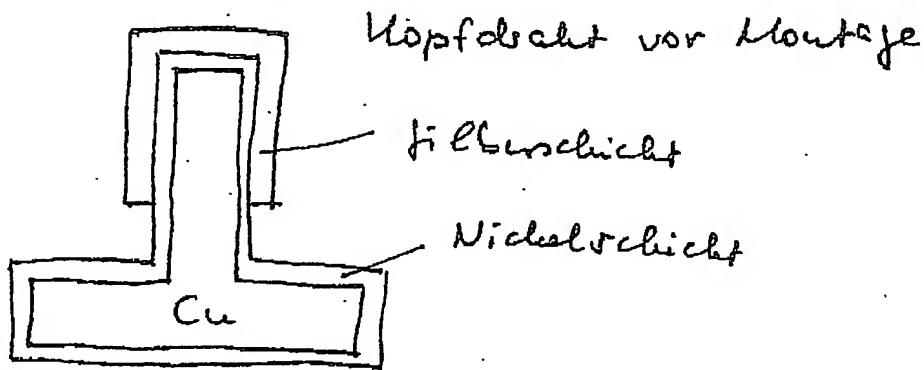 Kopfdraht vor Montage
Silberschicht
Nickelschicht
Cu